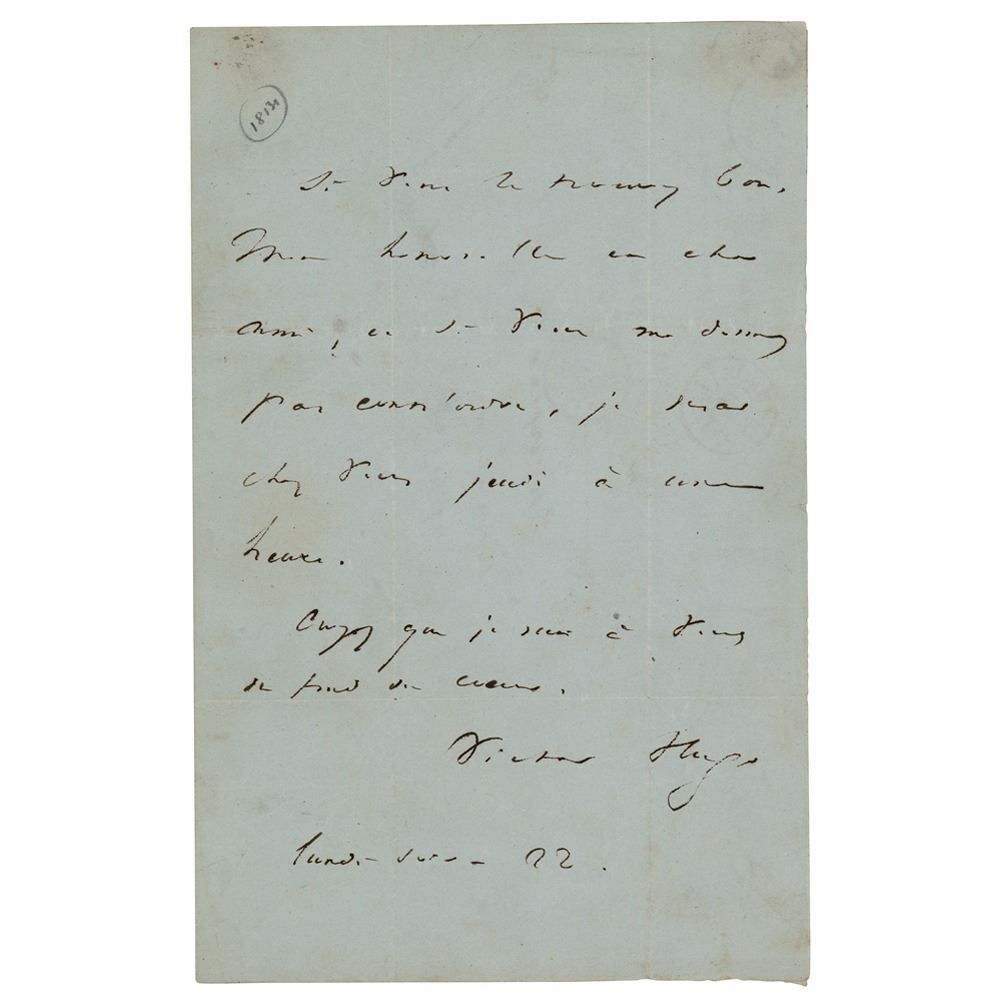 18131
Si vous le trouvez bon,
Mon honorable et cher
ami, et si vous ne donnez
pas contr'ordre, je serai
chez vous jeudi à une
heure.
Croyez que je suis à vous
du fond du cœur.
Victor Hugo
lundi soir - 22.